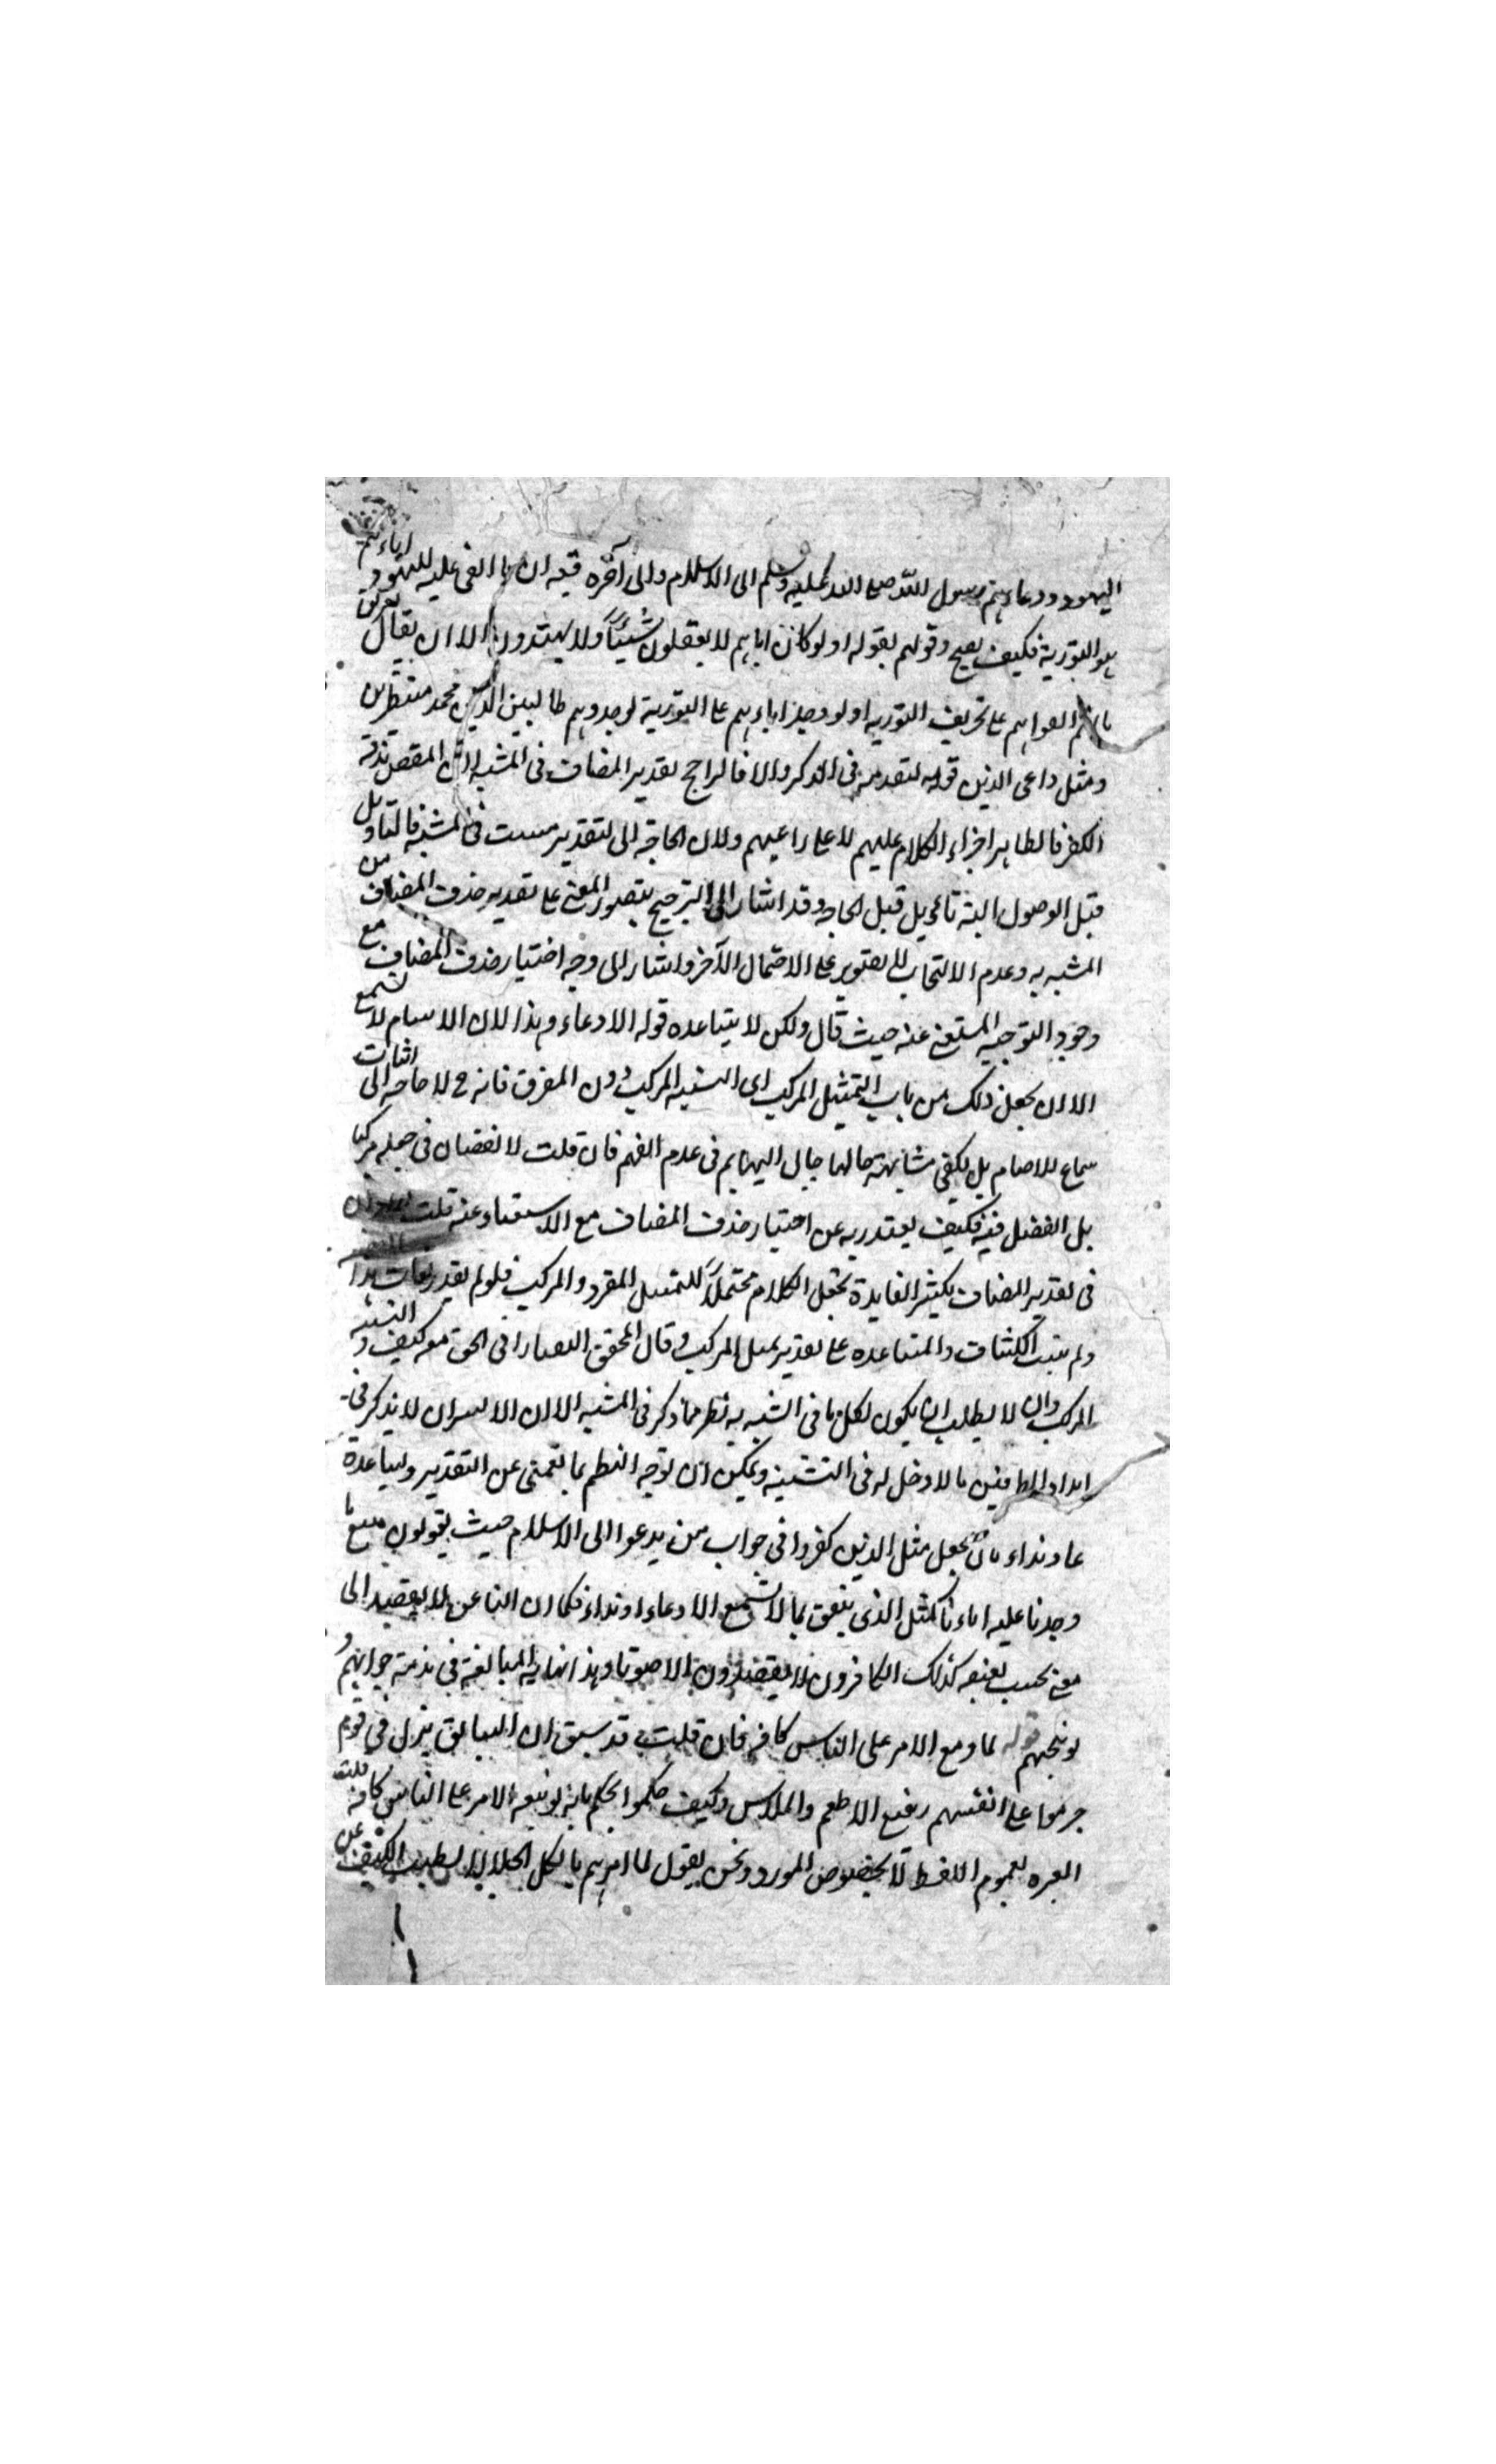 اليهود ودعاءهم رسول الله صلى الله عليه وسلم الى الاسلام والى آخره فيه ان ما الفى عليه اليهود اباءهم
هو التورية فكيف يصح وقولهم بقوله او لو كان اباهم لا يعقلون شيئاً ولا يهتدون الا ان يقال
الفواهم على تحريف التورية او لو وجد اباءهم على التورية لوجدوهم طالبين الدين محمد منتظرين
ومثل داعى الذين قوله لتقدمه فى الذكر والا فالراجح تقدير المضاف فى المشبه لان المقص
الكفر فالظاهر اجزاء الكلام عليهم لا على راعيهم ولان الحاجة الى التقدير مست فى المشبه فالتاويل
قبل الوصول اليه تاويل قبل الحاجة وقد اشار الى الترجيح بتصوير المعنى على تقدير حذف المضاف من
المشبه به وعدم الالتحاب للتصوير على الاحتمال الآخر واشار الى وجه اختيار حذف المضاف مع
وجود التوجيه المستغنى عنه حيث قال ولكن لا يساعده قوله الا دعاء وهذا لان الاصنام لا تسمع
الا ان يجعل ذلك من باب التمثيل المركب اى التشبيه المركب دون المفرق فانه ح لا حاجة الى اثبات
سماع للاصنام بل يكفى مشابهة حالها بحال البهايم فى عدم الفهم فان قلت لا نقصان فى جعله مركبا
بل الفضل فيه فكيف يعتذر به عن اختيار حذف المضاف مع الاستغناء عنه قلت
فى تقدير المضاف يكثر الفايدة بجعل الكلام محتملاً للتمثيل المفرد والمركب فلو لم يقدر لفات هذا
ولم يثبت الكشاف والمساعده على تقدير تمثيل المركب وقال المحقق التفتازانى الحق معه كيف و التشبيه
المركب وان لا يطلب ان يكون لكل ما فى المشبه به نظير مما ذكر فى المشبه الا ان لا يذكر فى
الطرفين ما لا دخل له فى التشبيه ويمكن ان توجه النظم بما يغنى عن التقدير ويساعده
دعاء ونداء بان يجعل مثل الذين كفروا فى جواب من يدعوا الى الاسلام حيث يقولون نتبع ما
وجدنا عليه اباءنا كمثل الذى ينعق بما لا يسمع الا دعاء او نداء فكما ان الناعق لا يقصد الى
معنى بحسب نعيقه كذلك الكافرون لا يقصدون الا صوتا وهذا نهاية المبالغة فى مذمة جوابهم و
توبيخهم قوله لما وسع الامر على الناس كافه فان قلت قد سبق ان السابق نزل فى قوم
حرموا على انفسهم رفيع الاطعم والملابس وكيف حكموا الحكم بانه توسعه الامر على الناس كافه قلت
العبره لعموم اللفظ لا بخصوص المورد ونحن يقول لما امرهم باكل الحلال